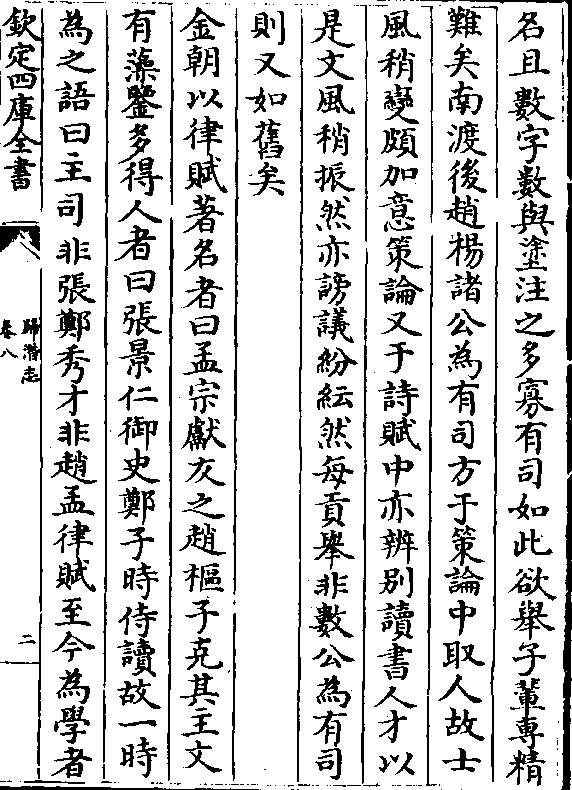 名且數字數與塗注之多寡有司如此欲舉子輩專精
難矣南渡後趙楊諸公為有司方于策論中取人故士
風稍變頗加意策論又于詩賦中亦辨别讀書人才以
是文風稍振然亦謗議紛紜然每貢舉非數公為有司
則又如舊矣
金朝以律賦著名者曰孟宗獻友之趙樞子克其主文
有藻鑒多得人者曰張景仁御史鄭子時侍讀故一時
為之語曰主司非張鄭秀才非趙孟律賦至今為學者
欽定四庫全書
歸潛志
卷八
二